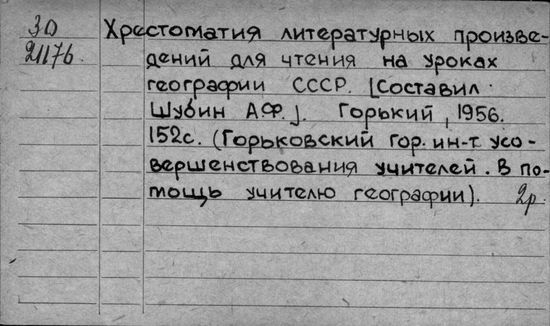 3D
21176.
Хрестоматия литературных произве-
дений для чтения на уроках
географии СССР. [Составил
Шубин А.Ф.]. Горький, 1956.
152с. (Горьковский гор. ин-т усо-
вершенствования учителей. В по-
мощь учителю географии). 2р.